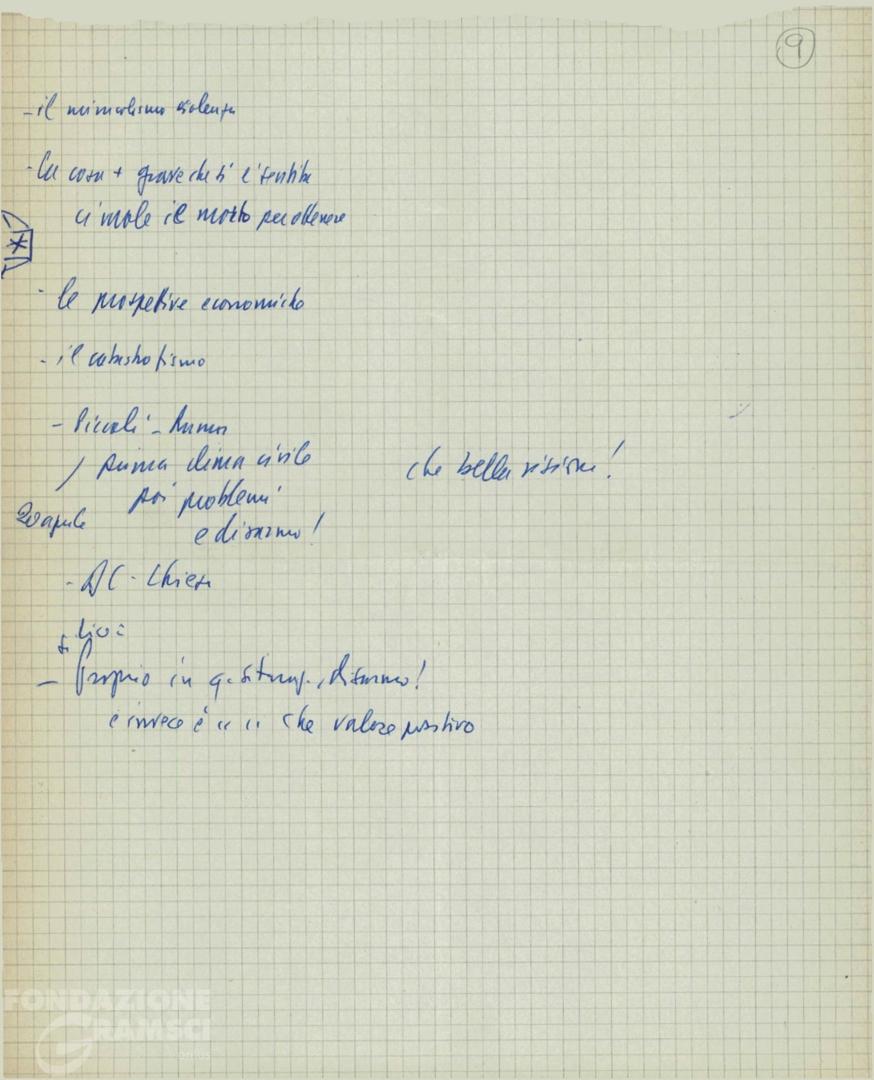 9
- il minimalismo violenza
- la cosa + grave che si è sentita
ci vuole il morto per ottenere
- le prospettive economiche
- il catastrofismo
- Piccoli - Rumor
/ prima clima civile
che bella visione!
poi problemi
20 aprile
e disarmo!
- DC - Chiesa
- Proprio in q. situaz., disarmo!
e invece è " " che valore positivo
FONDAZIONE
GRAMSCI